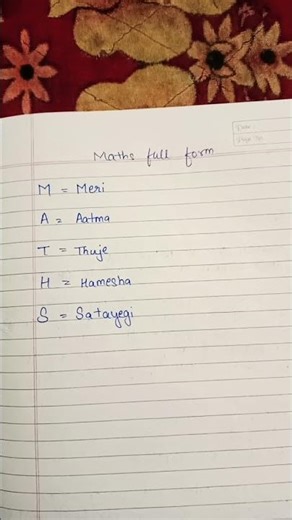 Date
Maths full form
M = Meri
A = Aatma
T = Thuje
H = Hamesha
S = Satayegi